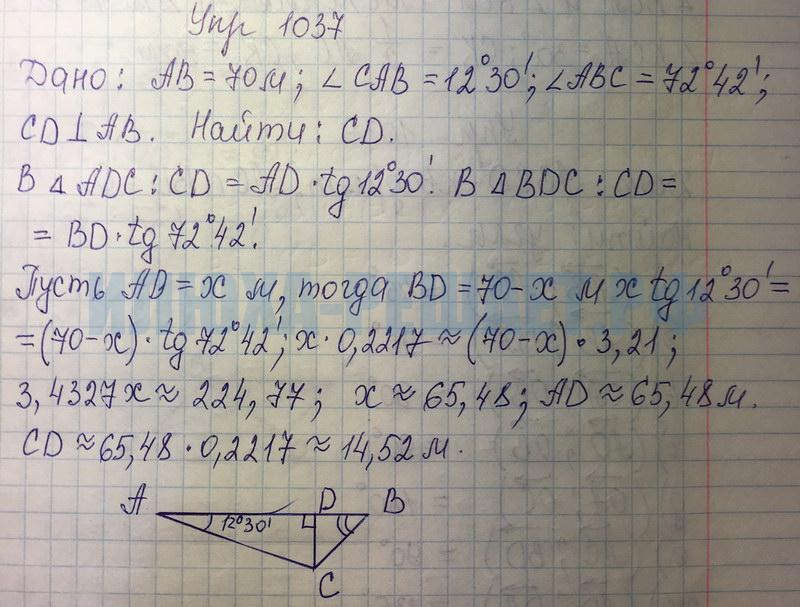 Упр 1037
Дано: AB = 70 м; ∠CAB = 12°30'; ∠ABC = 72°42';
CD ⊥ AB. Найти: CD.
В △ ADC: CD = AD · tg 12°30'. В △ BDC: CD =
= BD · tg 72°42'.
Пусть AD = x м, тогда BD = 70-x м x tg 12°30' =
= (70-x) · tg 72°42'; x · 0,2217 ≈ (70-x) · 3,21;
3,4327x ≈ 224,77; x ≈ 65,48; AD ≈ 65,48 м.
CD ≈ 65,48 · 0,2217 ≈ 14,52 м.
A D B
12°30'
C